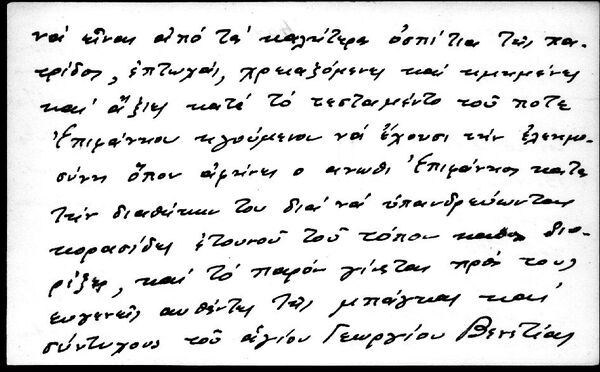 νά εἶναι ἀπό τά καλήτερα ὁσπίτια τῆς πα-
τρίδος, ἐπτωχαί, χρειαζόμενες καί τιμημένες
καί ἄξιες κατά τό τεσταμέντο τοῦ ποτε
Ἐπιφάνιου ηγούμενου νά ἔχουσι τήν ἐλεημο-
σύνη ὅπου ἀφίνει ο ανωθι Ἐπιφάνιος κατα
τήν διαθήκην του διά νά ὑπανδρεύωνται
κορασίδες ἐτουνοῦ τοῦ τόπου καθώς διο-
ρίζει, καί τό παρόν γίνεται πρός τους
ευγενεῖς αυθέντες τῆς μπάγκας καί
σύντυχους τοῦ ἁγίου Γεωργίου Βενετίας